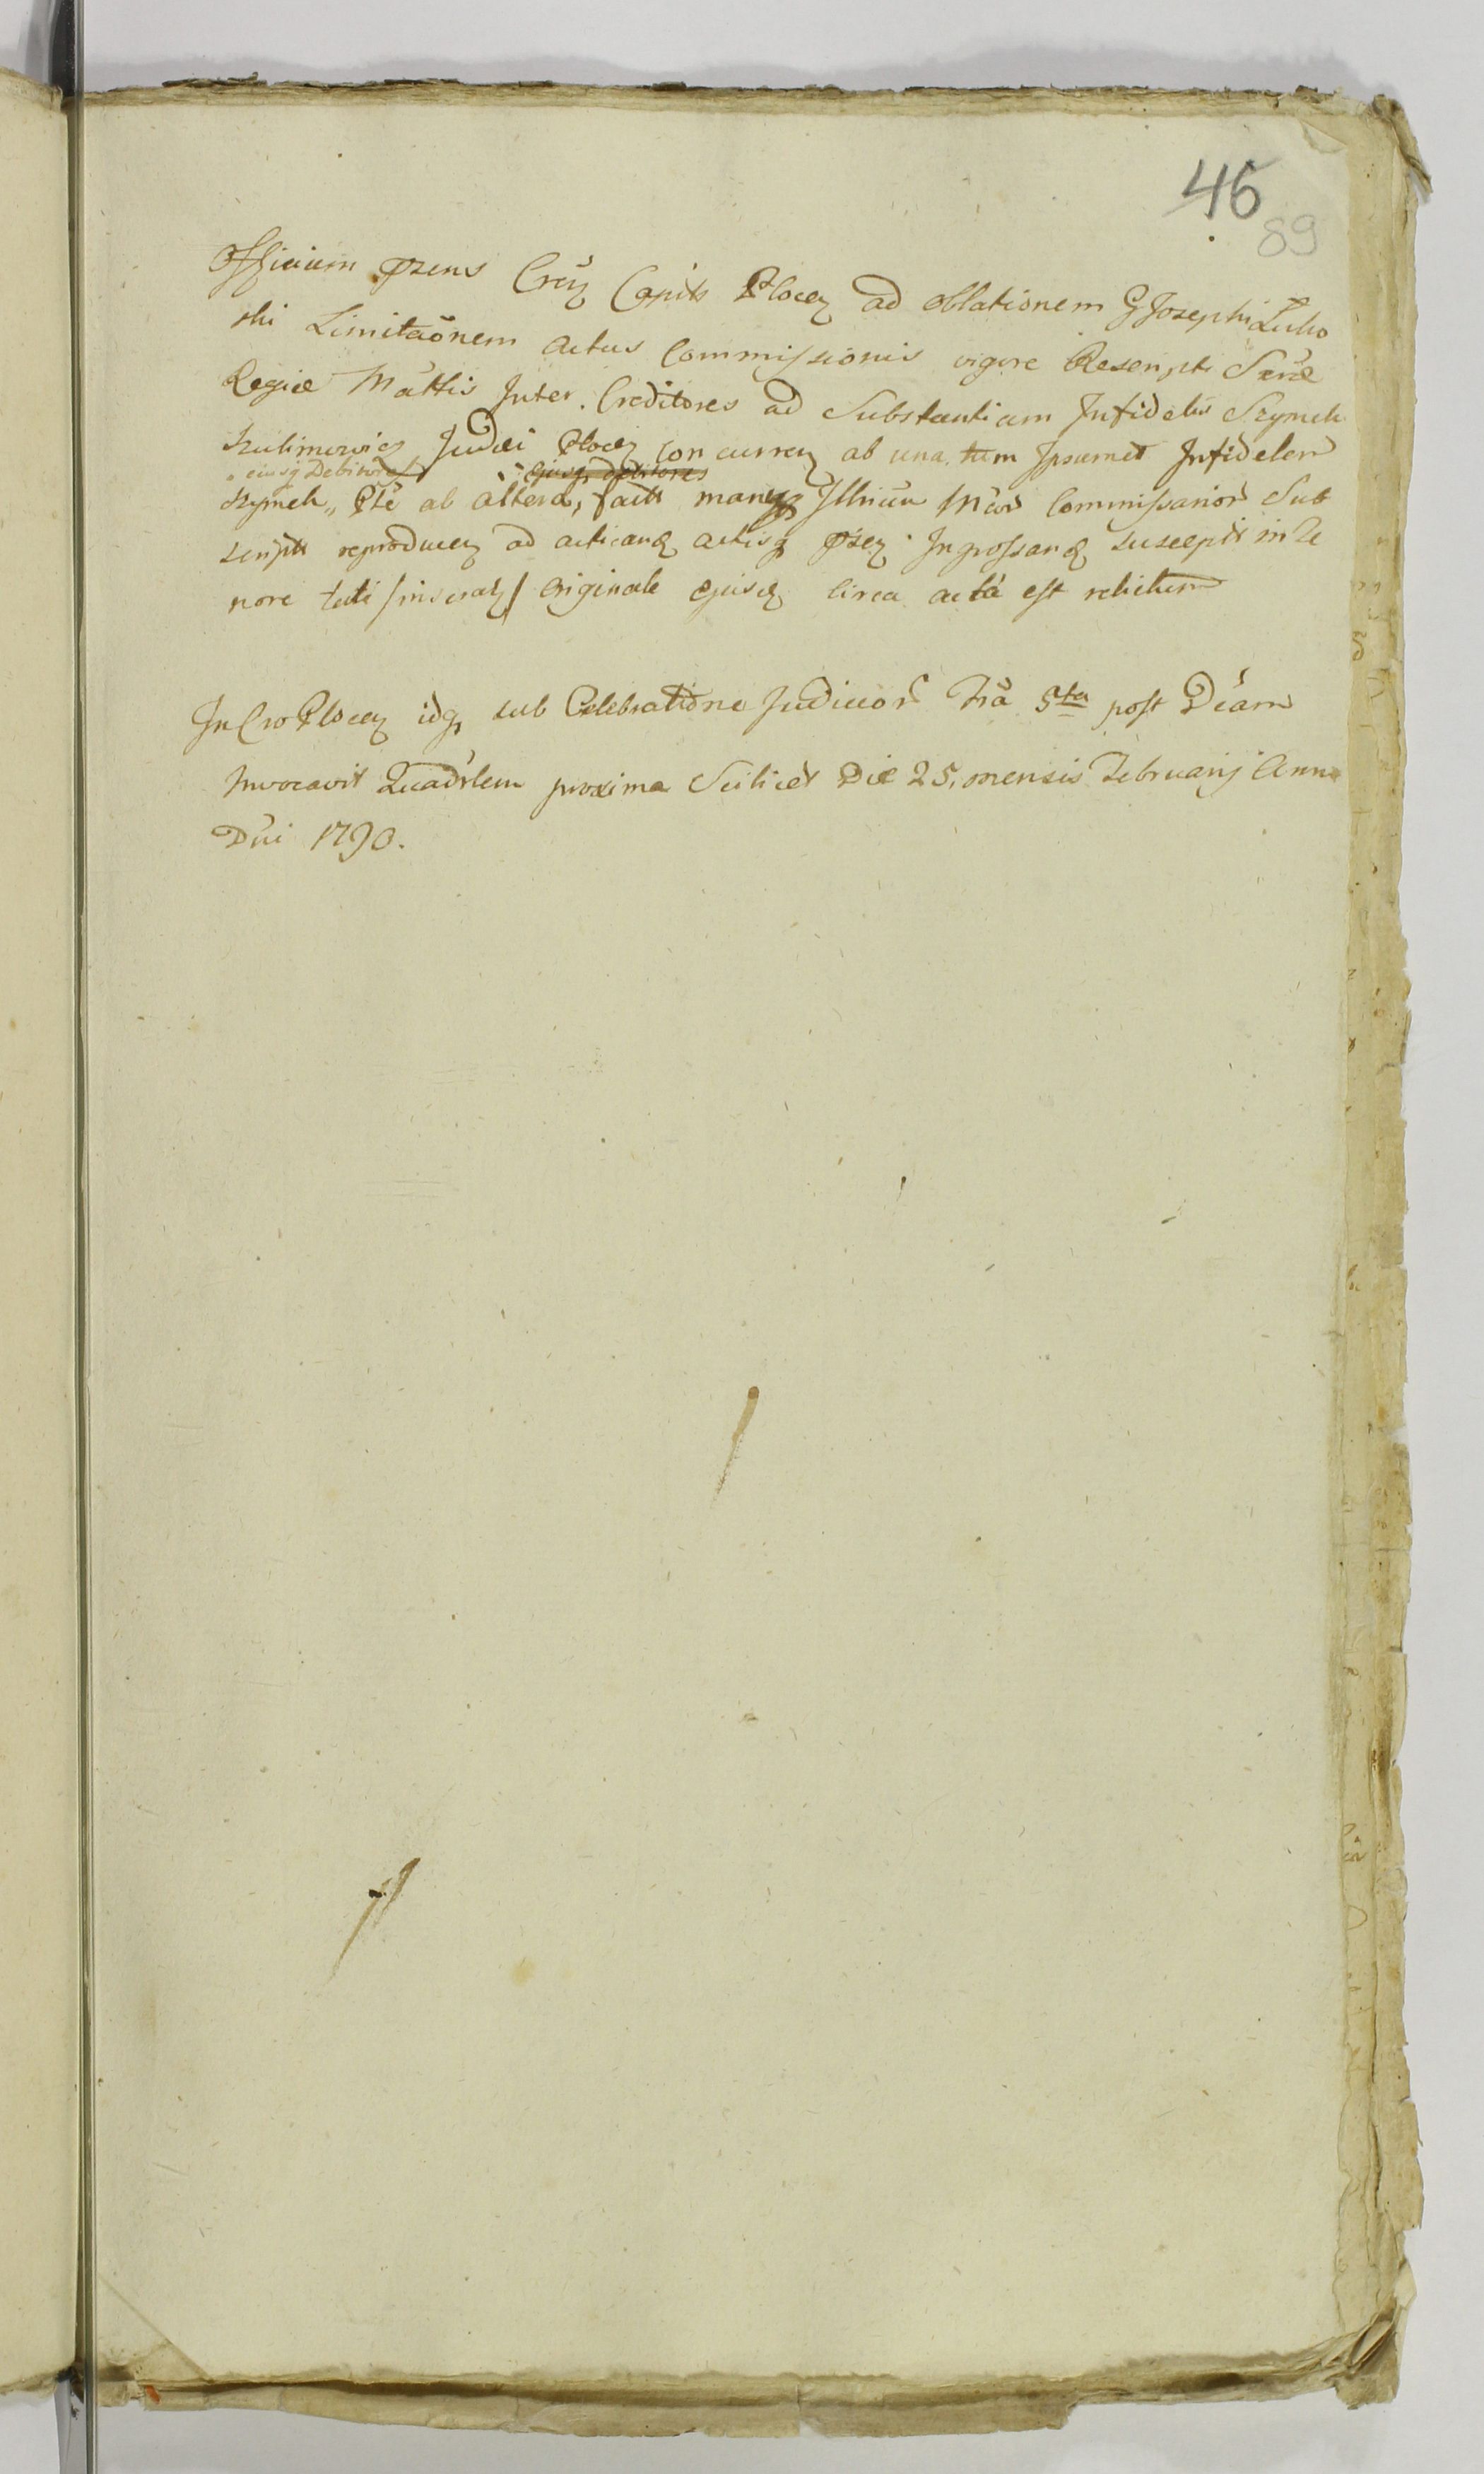 46
89
Officium przens Crēn Capits Plocen ad oblationem G Josephi Lubo
ski Limitaōnem actus Commissionis vigore Rescripti Srae
Regiae Mattis Inter Creditores ad Substantiam Infidelis Szymek
Judei Plocen concurren ab una tum Ipsumet Infidelem
ejusq Debitores ejusq debitores
Szymek Pte ab altera, fact manq Illrium Commissarior Sub
script reproducen ad acticand actisq przen Ingrossand suscepit in Te
nore tali /inserat/ Originale ejusd circa acta est relictum
In Cro Plocen idq sub Celebratione Judicior Fria 5ta post Dcam
Invocavit Quadrlem proxima Scilicet Die 25, mensis Februarij Anno
Dni 1790.